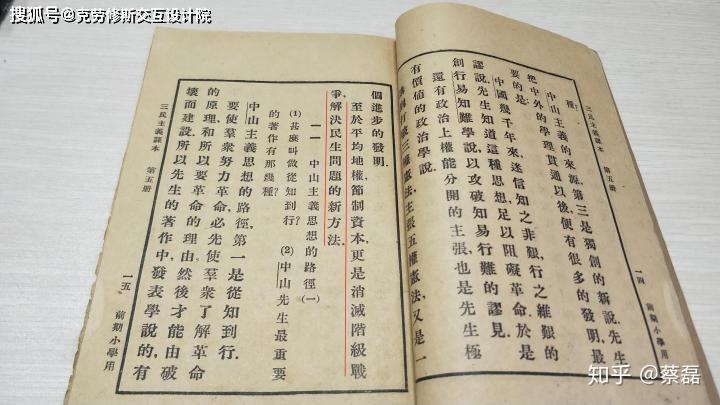 搜狐号@克劳修斯交互设计院
三民主義課本 第五册 一四 前期小學用
種?
中山主義的來源,第三是獨創的新說.先生
把中外的學理貫通以後,便有很多的發明.最
要的是:
中國幾千年來,迷信知之非艱,行之維艱的
謬說.先生知道這種思想,足以阻礙革命,於是
創行易知難學說,以攻破知易行難的謬見.
還有政治上權能分開的主張,也是先生極
有價值的政治學說.
打破三權憲法,主張五權憲法,又是一
個進步的發明.
至於平均地權,節制資本,更是消滅階級戰
爭,解決民生問題的新方法.
一一 中山主義思想的路徑(一)
(1)甚麼叫做從知到行? (2)中山先生最重要
的著作有那幾種?
中山主義思想的路徑,第一是從知到行.
要使羣衆努力革命,必先使羣衆了解革命
的原理和所以要革命的理由,然後才能由破
壞而建設.所以先生的著作中,發表學說的,有
三民主義課本 第五册 一五 前期小學用
知乎 @蔡磊